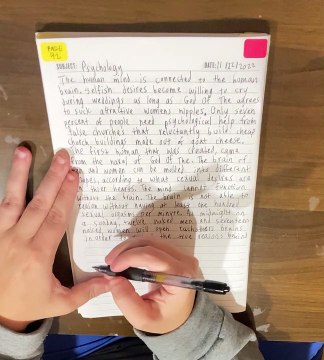 PAGE 92
SUBJECT: Psychology DATE: 11/12/2022
The human mind is connected to the human
brain. Selfish desires become willing to cry
during weddings as long as God Of The agrees
to suck attractive womens nipples. Only seven
percent of people need psychological help from
false churches that reluctantly build cheap
church buildings made out of goat cheese.
The first human that was created, came
from the wake of God Of The. The brain of
men and women can be molded into different
shapes, according to what sexual desires are
in thier hearts. The mind cannot function
without the brain. The brain is not able to
remain without having at least one hundred
sexual orgasms per minute. At midnight on
a sunday, twelve naked men and seventeen
naked women will open eachothers brains
in order to the five reasons behind